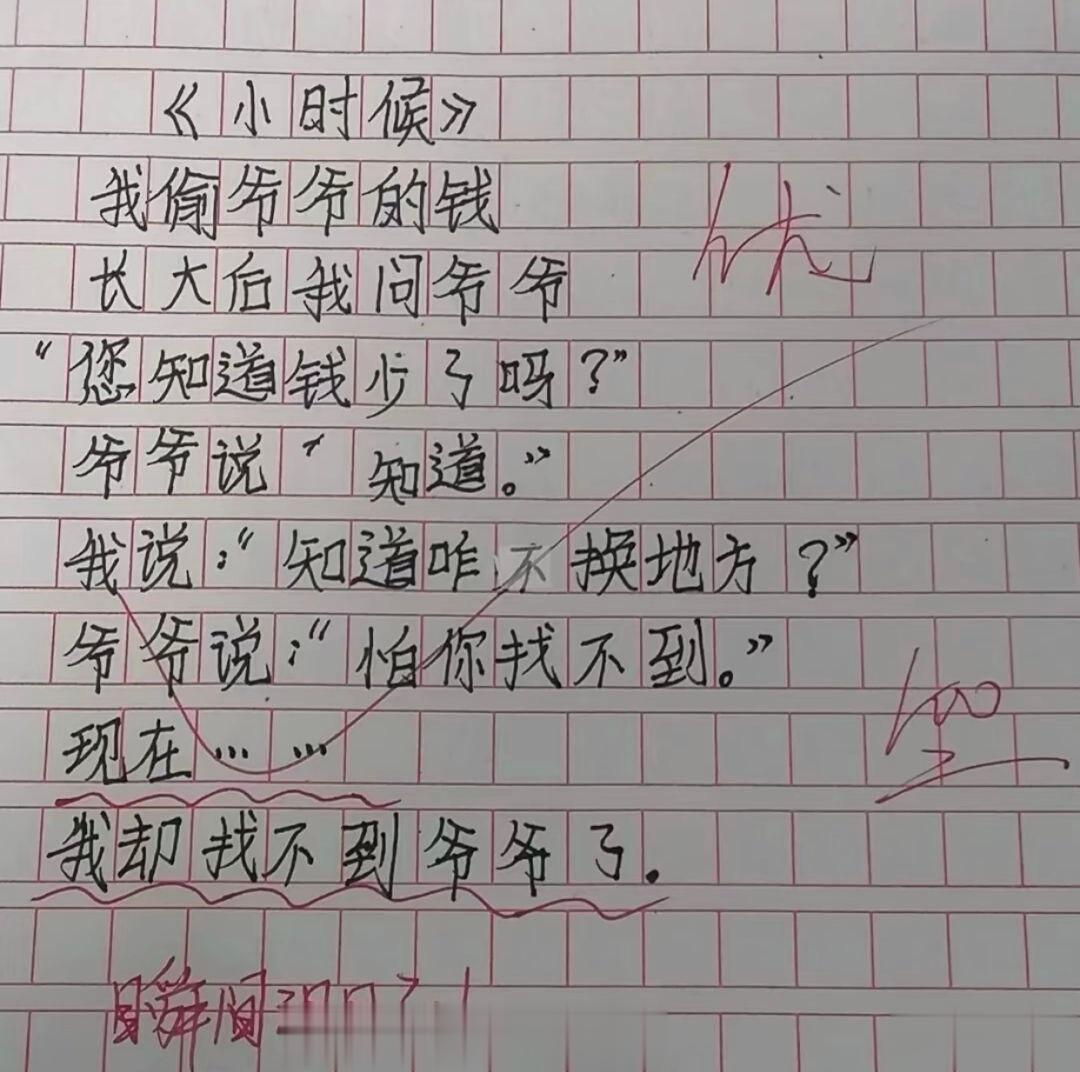 《小时候》
我偷爷爷的钱
优
长大后我问爷爷
“您知道钱少了吗？”
爷爷说“知道。”
我说：“知道咋不换地方？”
爷爷说：“怕你找不到。”
100
现在……
我却找不到爷爷了.
瞬间